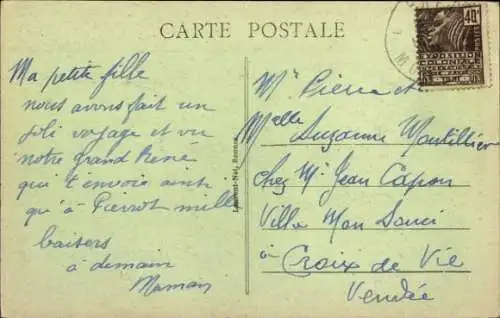 CARTE POSTALE
Ma petite fille
nous avons fait un
joli voyage et vu
notre grand René
qui t'envoie ainsi
qu'à Pierrot mille
baisers
à demain
Maman
Laurent-Nel, Rennes
Mr Pierre et
Melle Suzanne Montillier
chez Mr Jean Capon
Villa Mon Souci
à Croix de Vie
Vendée
40c
POSTES
EXPOSITION
COLONIALE